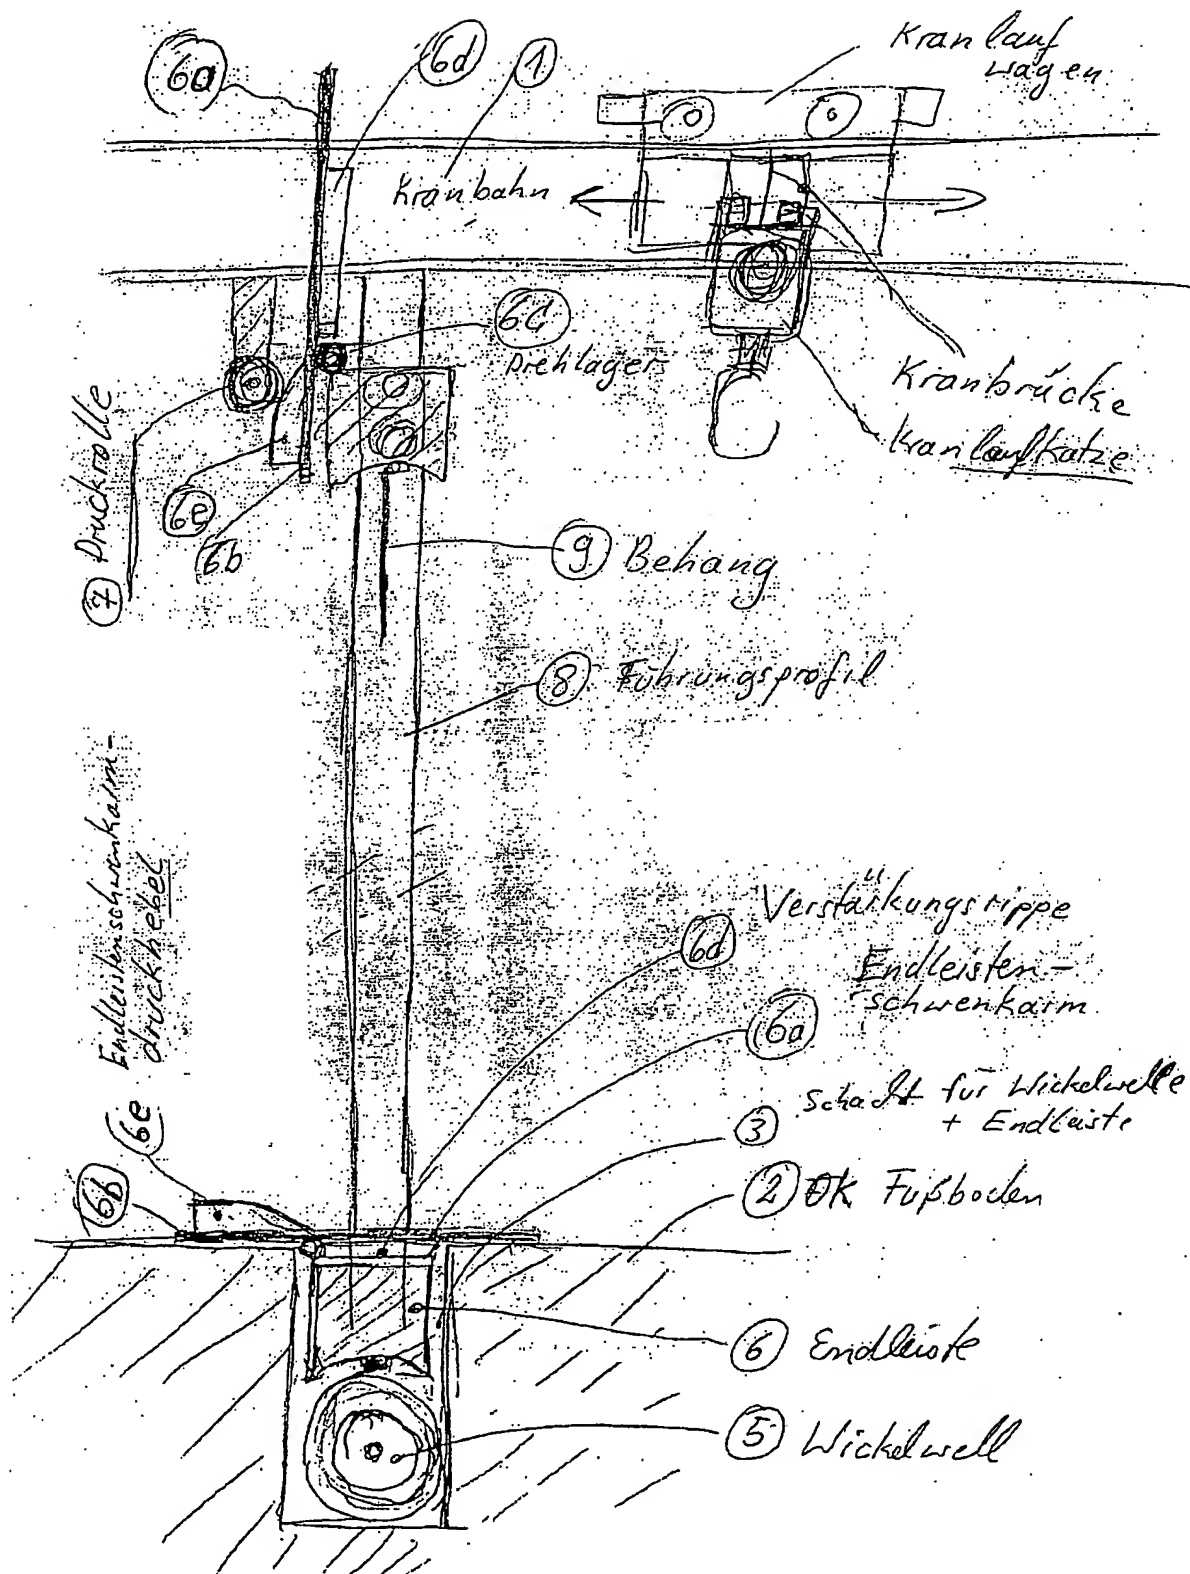 6a
6d
1
Kranlauf
wagen
Kranbahn
6c
Drehlager
Kranbrücke
Kranlaufkatze
7 Druckrolle
6e
6b
9 Behang
8 Führungsprofil
6e Endleistenschwenkarm-
druckhebel
6d Verstärkungsrippe
Endleisten-
schwenkarm
6a
3 Schacht für Wickelwelle
+ Endleiste
6b
2 OK Fußboden
6 Endleiste
5 Wickelwell